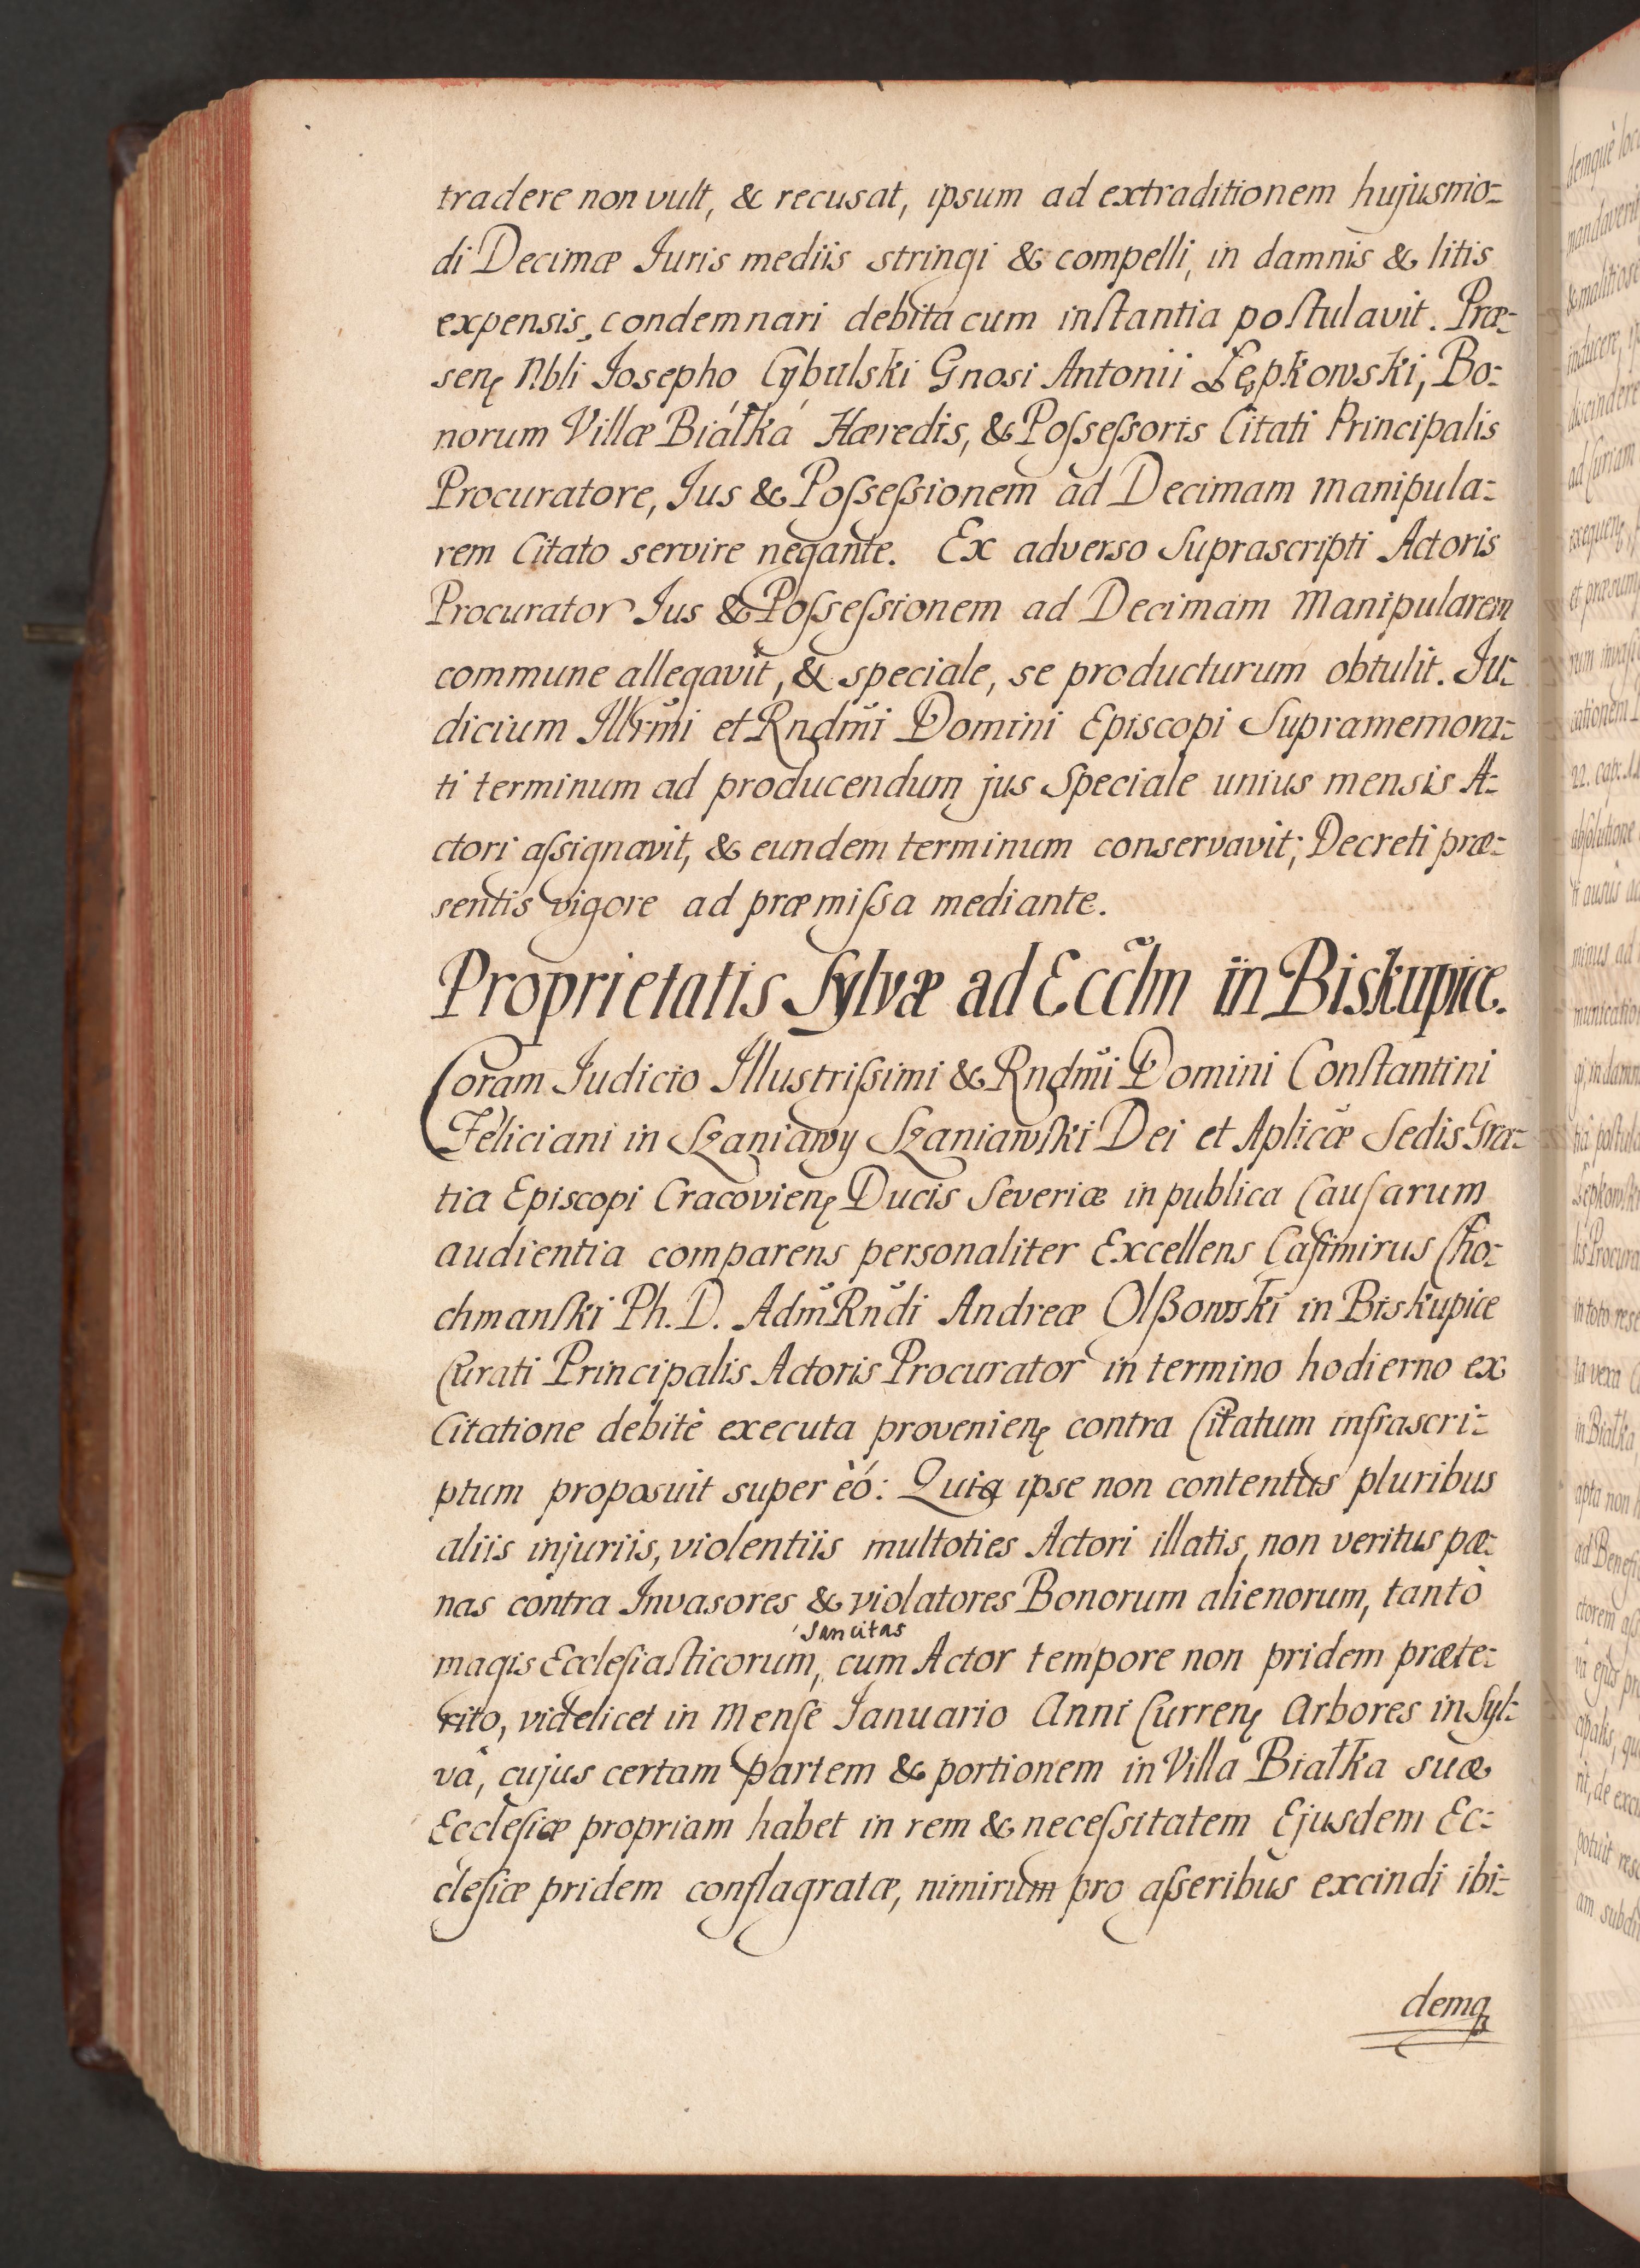 tradere non vult, & recusat, ipsum ad extraditionem hujusmo-
di Decimæ Iuris mediis stringi & compelli, in damnis & litis
expensis, condemnari debita cum inſtantia poſtulavit. Præ-
senę Nbli Iosepho Cybulski Gnosi Antonii Łępkowski, Bo-
norum Villæ Białka Hæredis, & Poſseſsoris Citati Principalis
Procuratore, Ius & Poſseſsionem ad Decimam manipula-
rem Citato servire negante. Ex adverso Suprascripti Actoris
Procurator Ius & Poſseſsionem ad Decimam Manipularem
commune allegavit, & speciale, se producturum obtulit. Iu-
dicium Illrm̃i et Rndm̃i Domini Episcopi Supramemora-
ti terminum ad producendum jus Speciale unius mensis A-
ctori aſsignavit, & eundem terminum conservavit; Decreti præ-
sentis vigore ad præmiſsa mediante.
Proprietatis Sylvæ ad Ecclm̃ in Biskupice.
Coram Iudicio Illustriſsimi & Rndm̃i Domini Conſtantini
Feliciani in Szaniawy Szaniawſki Dei et Aplicæ Sedis Gra-
tia Episcopi Cracovienę Ducis Severiæ in publica Cauſarum
audientia comparens personaliter Excellens Caſimirus Cho-
chmanſki Ph. D. Adm̃ Rñdi Andreæ Olſzowski in Biskupice
Curati Principalis Actoris Procurator in termino hodierno ex
Citatione debitè executa provenienę contra Citatum infrascri-
ptum proposuit super èó: Quia ipse non contentus pluribus
aliis injuriis, violentiis multoties Actori illatis, non veritus pæ-
nas contra Invasores & violatores Bonorum alienorum, tantò
Sancitas
magis Eccleſiaſticorum, cum Actor tempore non pridem præte-
rito, videlicet in Menſe Ianuario Anni Currenę Arbores in Syl-
vâ, cujus certam partem & portionem in Villa Białka suæ
Eccleſiæ propriam habet in rem & neceſsitatem Ejusdem Ec-
cleſiæ pridem conflagratæ, nimirum pro aſseribus excindi ibi-
demq